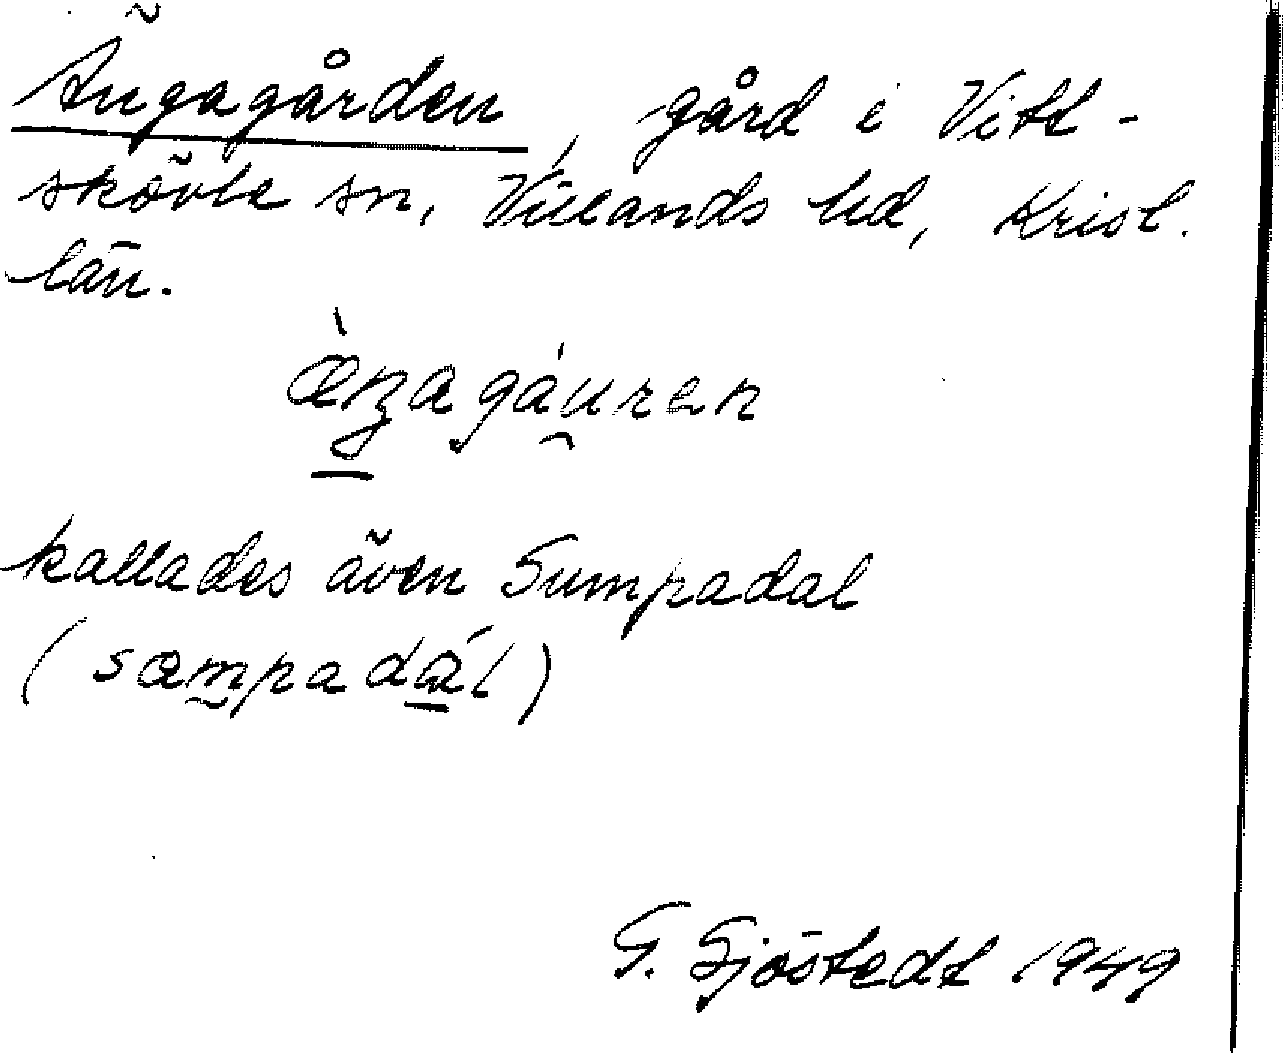 Ängagården, gård i Vitt-
skövle sn, Villands hd, Krist.
län.
æ̀ŋagáu̯ren
kallades även Sumpadal
(sœmpadál)
G. Sjöstedt 1949